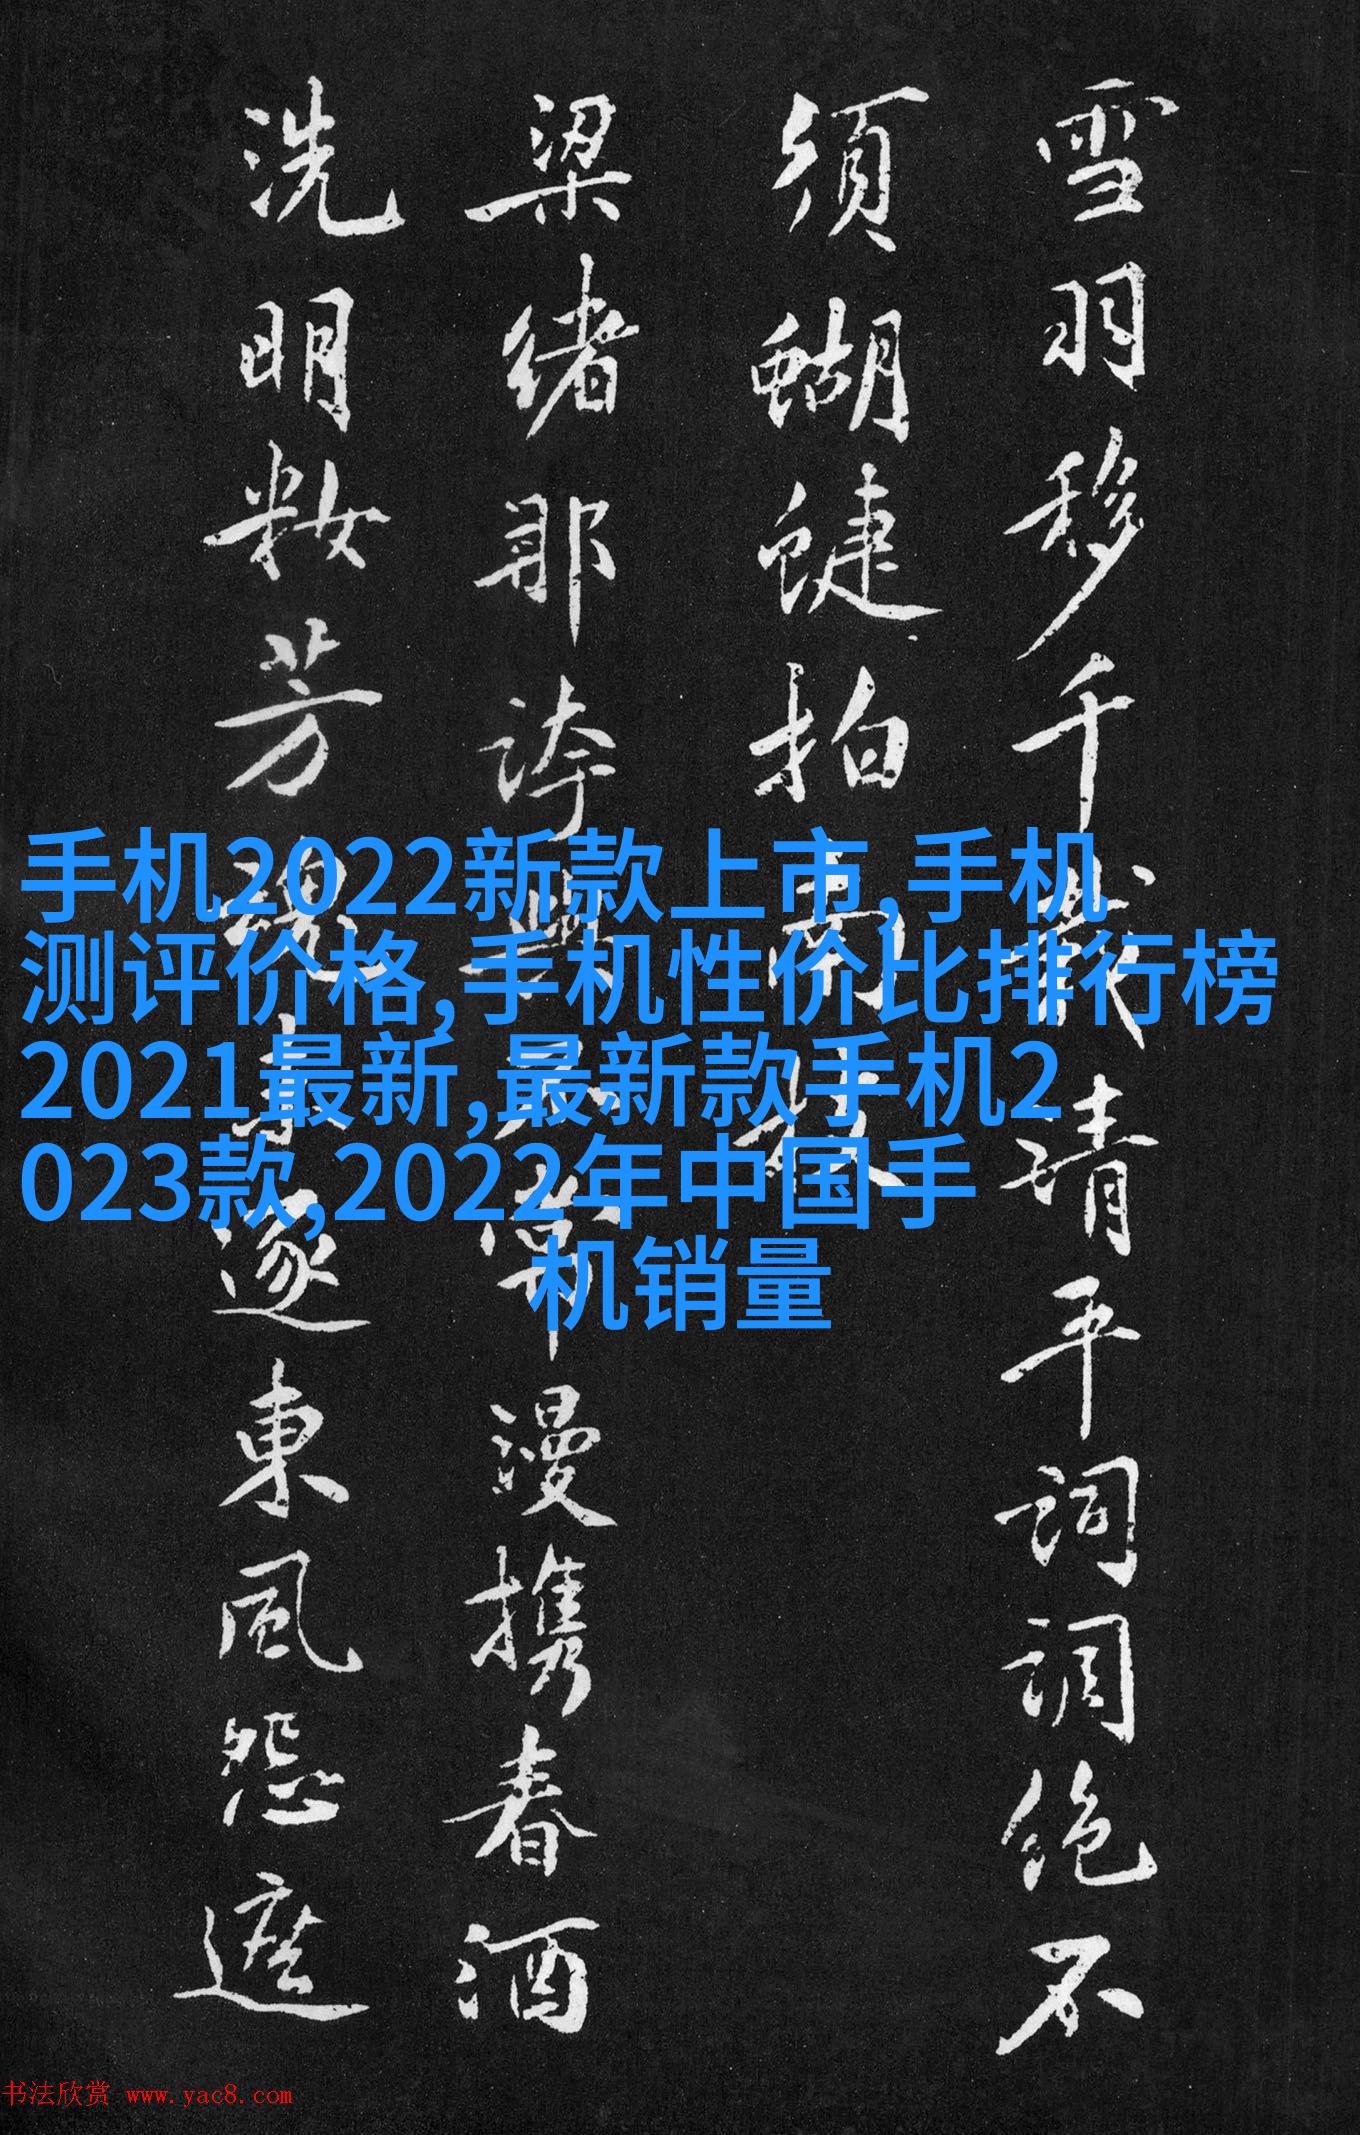 雪羽移千載清平词调绝不
须蝴蝶拍南枝
梁绪那誇興
漫携春酒
洗明妝芳魂
逐東風怨遮
手机2022新款上市,手机
测评价格,手机性价比排行榜
2021最新,最新款手机2
023款,2022年中国手
机销量
书法欣赏 www.yac8.com